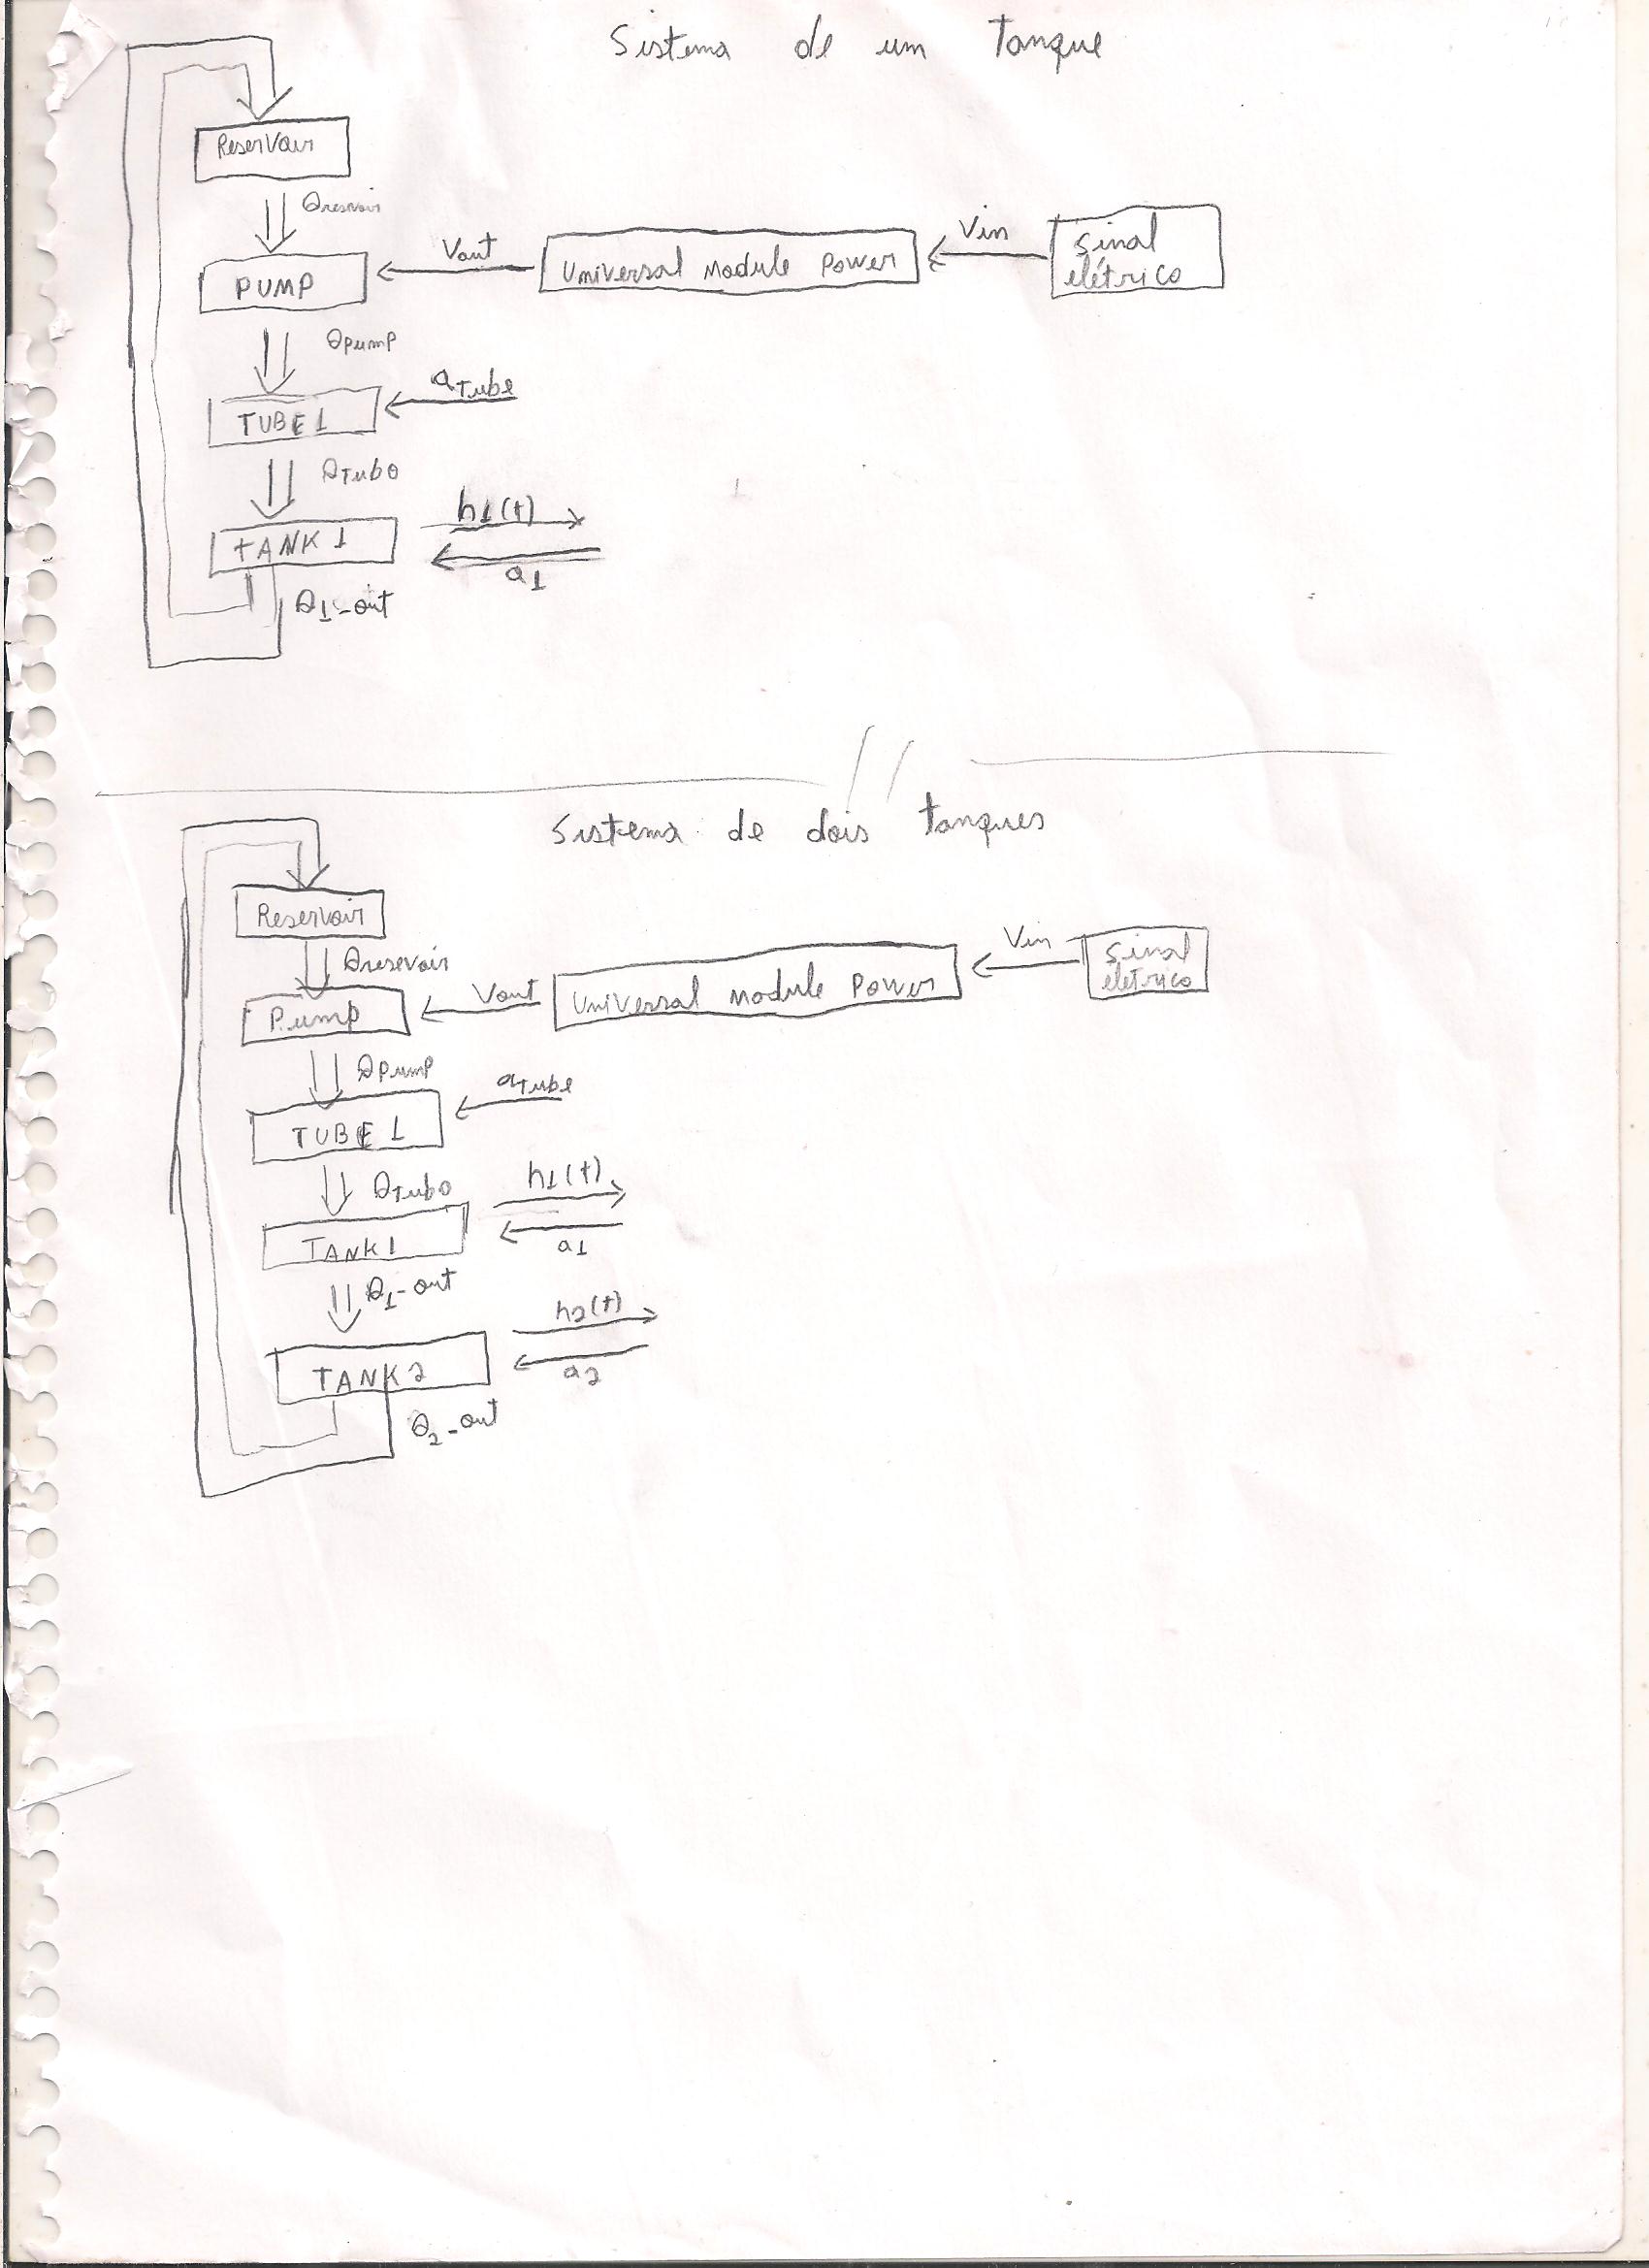 Sistema de um tanque
Reservoir
Qreservoir
Vout
Universal Module Power
Vin
Sinal
elétrico
PUMP
QPump
aTube
TUBE 1
QTubo
h1(t)
TANK 1
a1
Q1-out
Sistema de dois tanques
Reservoir
Qresevoir
Vout
Universal Module Power
Vin
Sinal
eletrico
Pump
QPump
aTube
TUBE 1
QTubo
h1(t)
TANK 1
a1
Q1-out
h2(t)
TANK 2
a2
Q2-out